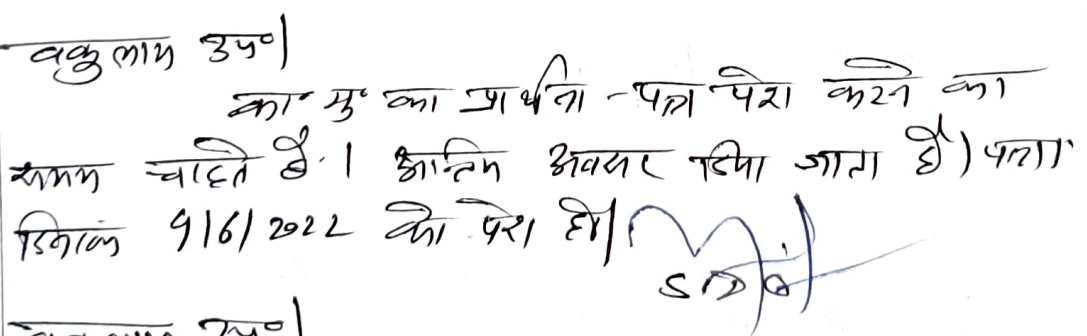 वकुलाय उप०।
का॰ मु॰ का प्रार्थना-पत्र पेश करने का
समय चाहते है। अन्तिम अवसर दिया जाता है। पत्रा॰
दिनांक 9/6/2022 को पेश हो।
उप०।